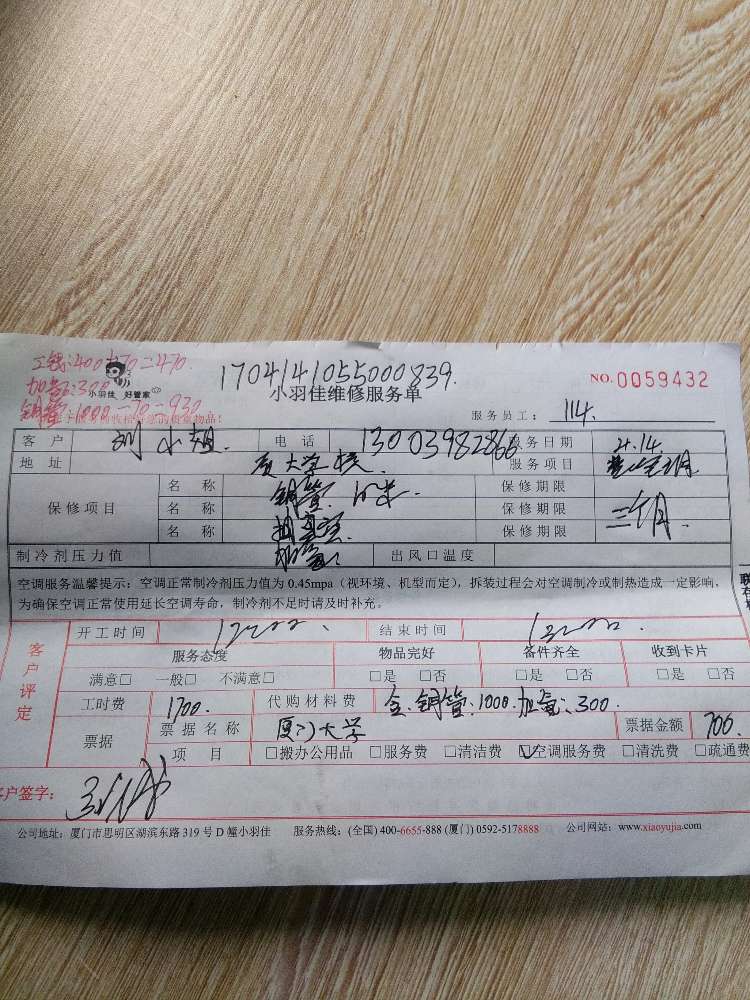 工钱:400+70=470
加氟:300
铜管:1000-70=930
小羽佳 好管家
170414105500839.
小羽佳维修服务单
NO.0059432
服务员工: 114.
客户 刘小姐. 电话 13003982866 服务日期 4.14.
地址 厦大学校 服务项目
保修项目 名称 铜管. 10米 保修期限
名称 抽真空 保修期限 三个月.
名称 加氟 保修期限
制冷剂压力值 出风口温度
空调服务温馨提示:空调正常制冷剂压力值为 0.45mpa(视环境、机型而定),拆装过程会对空调制冷或制热造成一定影响,
为确保空调正常使用延长空调寿命,制冷剂不足时请及时补充。
客户评定
开工时间 结束时间
服务态度 物品完好 备件齐全 收到卡片
满意□ 一般□ 不满意□ □是 □否 □是 □否 □是 □否
工时费 1700. 代购材料费 铜管:1000.加氟:300.
票据 票据名称 厦门大学 票据金额 1700.
项目 □搬办公用品 □服务费 □清洁费 ☑空调服务费 □清洗费 □疏通费
客户签字:
公司地址:厦门市思明区湖滨东路 319 号 D 幢小羽佳 服务热线:(全国) 400-6655-888 (厦门) 0592-5178888 公司网站:www.xiaoyujia.com